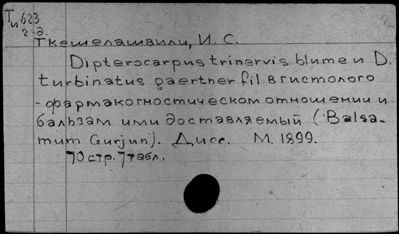 Ти 623
2-д.
Ткешелашвили, И. С.
Dipterocarpus trinervis blume и D.
turbinatus gaertner fil в гистолого
-фармакогностическом отношении и
бальзам ими доставляемый (Balsa-
mum Gurjun). Дисс. М. 1899.
70 стр. 7 табл.